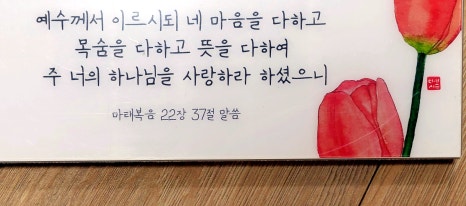 예수께서 이르시되 네 마음을 다하고
목숨을 다하고 뜻을 다하여
주 너의 하나님을 사랑하라 하셨으니
마태복음 22장 37절 말씀